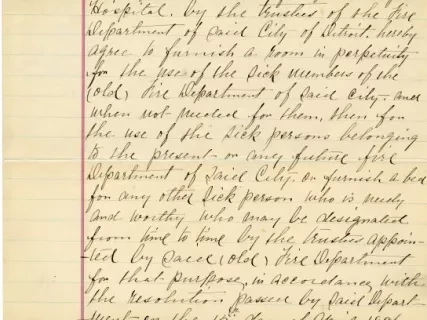 Hospital, by the trustees of the Fire
Department of said City of Detroit, hereby
agree to furnish a room in perpetuity
for the use of the sick members of the
(old) Fire Department of said City. and
when not needed for them, then for
the use of the sick persons belonging
to the present or any future fire
Department of said City. or furnish a bed
for any other sick person who is needy
and worthy who may be designated
from time to time by the trustees appoin-
-ted by said (old) Fire Department
for that purpose, in accordance with
the resolution passed by said Depart-
ment on the